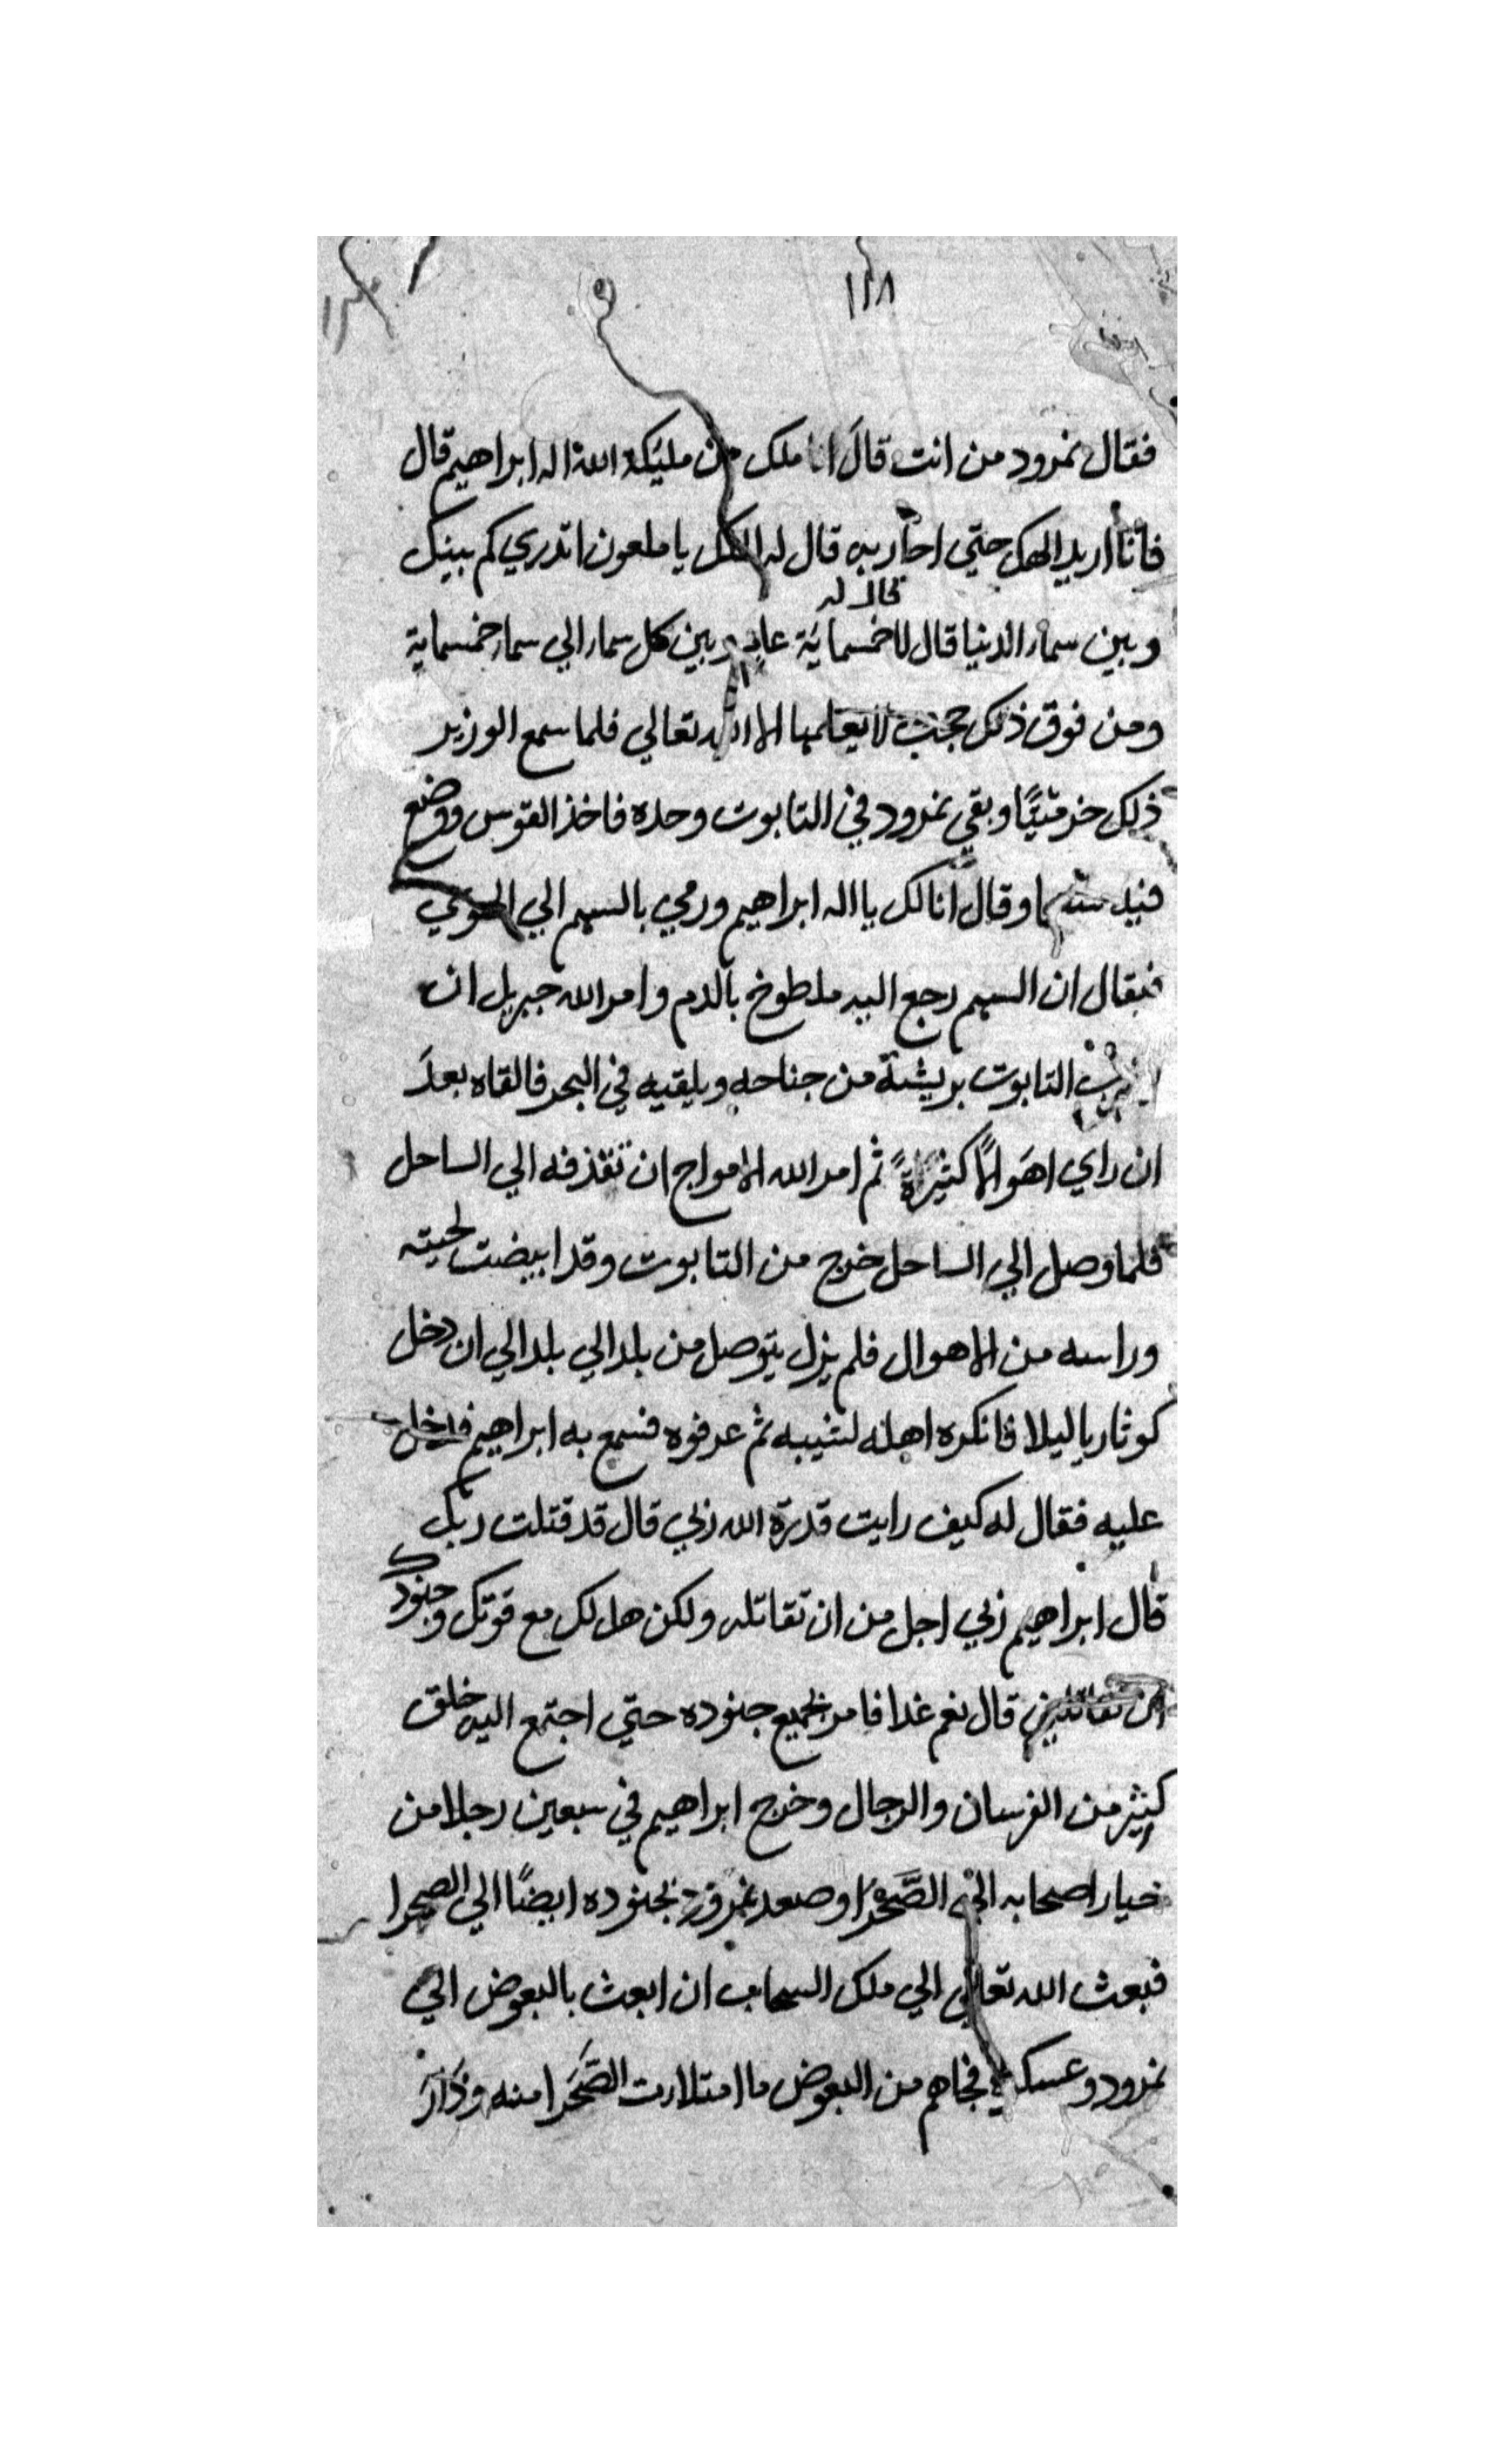 ١١٨
فقال نمرود من انت قال انا ملك من مليكة الله اله ابراهيم قال
فانا اريد الهك حتي احاربه قال له الملك يا ملعون اتدري كم بينك
قال له
وبين سماء الدنيا قال لا خمسماية عام وبين كل سماء الي سماء خمسماية
ومن فوق ذلك حجب لا يعلمها الا الله تعالي فلما سمع الوزير
ذلك خر ميتًا وبقي نمرود في التابوت وحده فاخذ القوس ووضع
فيه سهما وقال انا لك يا اله ابراهيم ورمي بالسهم الي الهوي
فيقال ان السهم رجع اليه ملطوخ بالدم وامر الله جبريل ان
يضرب التابوت بريشة من جناحه ويلقيه في البحر فالقاه بعد
ان راي اهوالًا كثيرةً ثم امر الله الامواج ان تقذفه الي الساحل
فلما وصل الي الساحل خرج من التابوت وقد ابيضت لحيته
وراسه من الاهوال فلم يزل يتوصل من بلد الي بلد الي ان دخل
كوثاريا ليلا فانكره اهله لشيبه ثم عرفوه فسمع به ابراهيم فدخل
عليه فقال له كيف رايت قدرة الله ربي قال قد قتلت ربك
قال ابراهيم ربي اجل من ان تقاتله ولكن هل لك مع قوتك وجنودك
ان تقاتلني قال نعم غدا فامر بجميع جنوده حتي اجتمع اليه خلق
كثير من الفرسان والرجال وخرج ابراهيم في سبعين رجلا من
خيار اصحابه الي الصَّحْرَا وصعد نمرود بجنوده ايضًا الي الصحرا
فبعث الله تعالي الي ملك السحاب ان ابعث بالبعوض الي
نمرود وعسكره فجاهم من البعوض ما امتلات الصَّحَرا منه